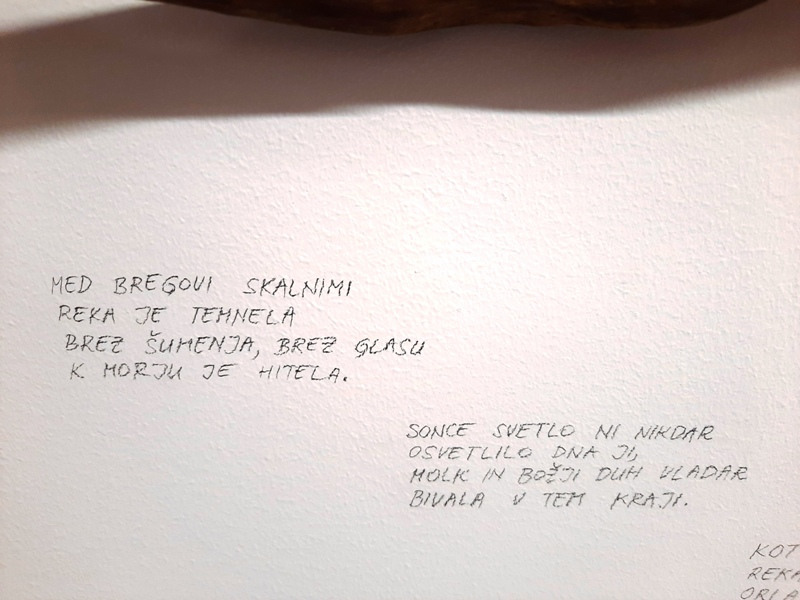 MED BREGOVI SKALNIMI
REKA JE TEMNELA
BREZ ŠUMENJA, BREZ GLASU
K MORJU JE HITELA.
SONCE SVETLO NI NIKDAR
OSVETLILO DNA JI,
MOLK IN BOŽJI DUH VLADAR
BIVALA V TEM KRAJI.
KOT
REKA